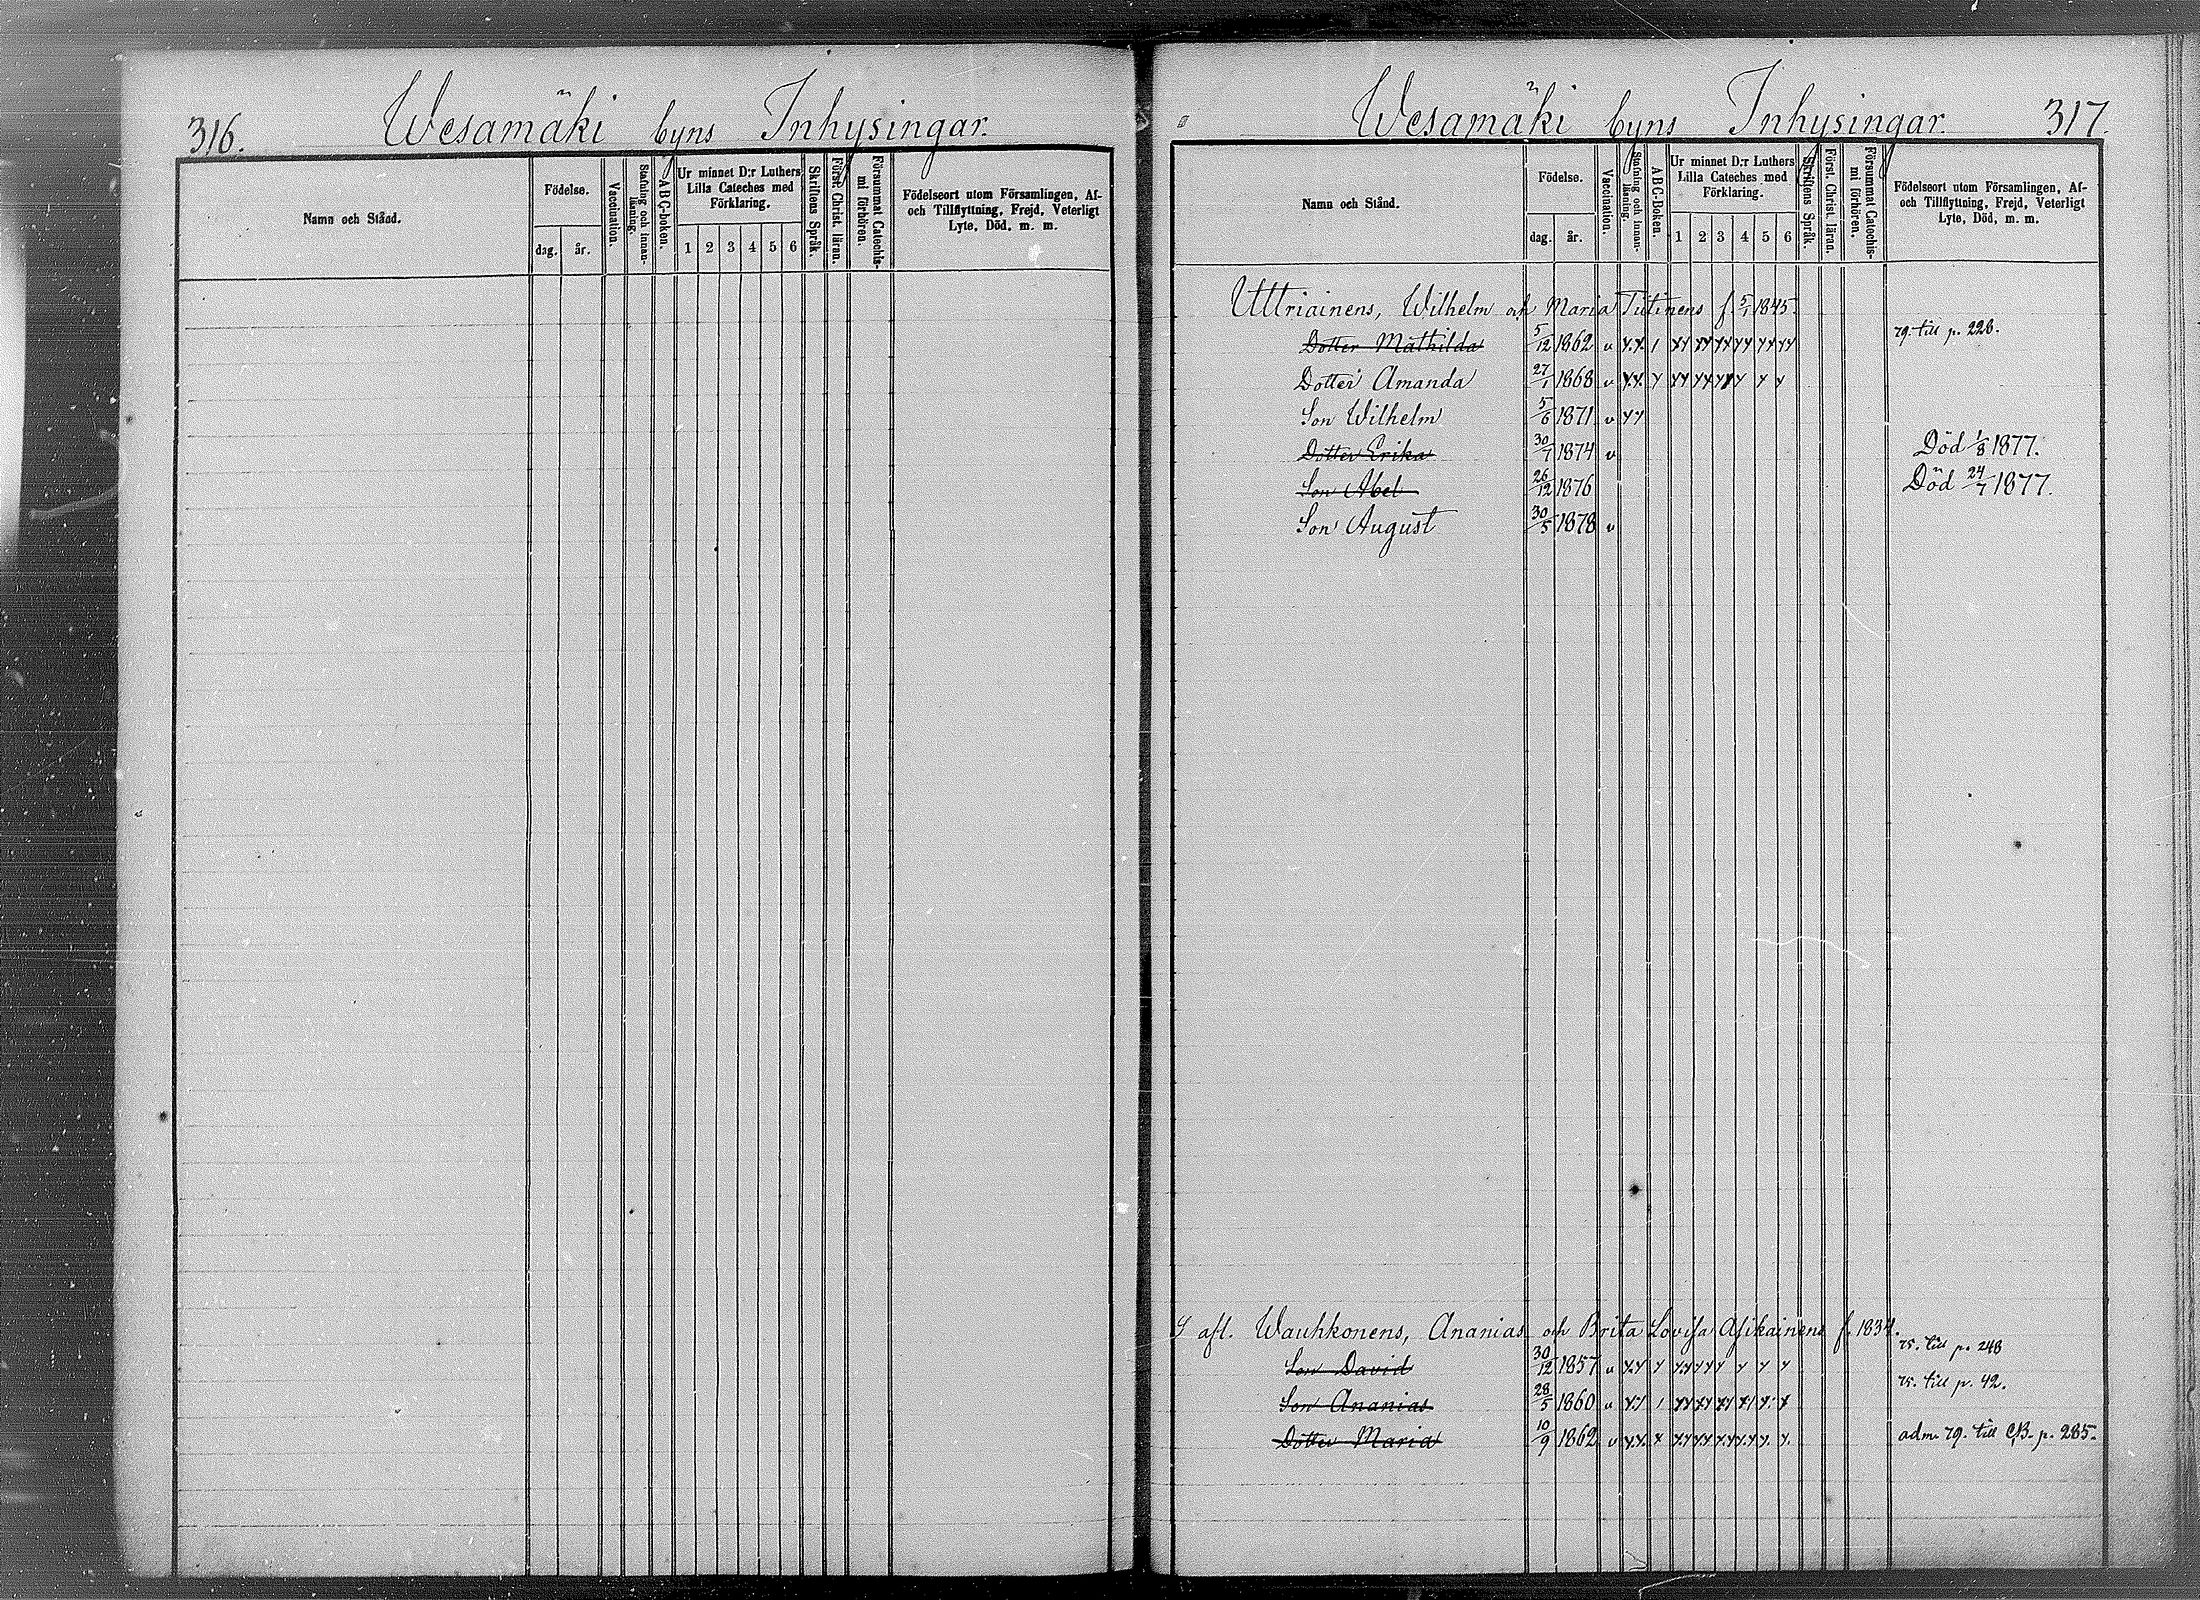 316.
Wesamäki byns Inhysingar.
Namn och Stånd.
Födelse.
dag.
år.
Vaccination.
Stafning och innan-läsning.
ABC-boken.
Ur minnet D:r Luthers
Lilla Cateches med
Förklaring.
1 2 3 4 5 6
Skriftens Språk.
Först. Christ. läran.
Försummat Catechis-
mi förhören.
Födelseort utom Församlingen, Af-
och Tillflyttning, Frejd, Veterligt
Lyte, Död, m. m.
Wesamäki byns Inhysingar. 317.
Namn och Stånd.
Födelse.
dag.
år.
Vaccination.
Stafning och innan-läsning.
ABC-Boken.
Ur minnet D:r Luthers
Lilla Cateches med
Förklaring.
1 2 3 4 5 6
Skriftens Språk.
Först. Christ. läran.
Försummat Catechis-
mi förhören.
Födelseort utom Församlingen, Af-
och Tillflyttning, Frejd, Veterligt
Lyte, Död, m. m.
Uttriainens, Wilhelm och Maria Tiitinens f. 5/1 1845.
Dotter Mathilda 5/12 1862 v 79. till p. 228.
Dotter Amanda 27/1 1868 v
Son Wilhelm 5/6 1871 v
Dotter Erika 30/7 1874 v Död 1/8 1877.
Son Abel 26/12 1876 Död 24/7 1877.
Son August 30/5 1878 v
afl. Wauhkonens, Ananias och Brita Lovisa Asikainens f. 1834.
Son David 30/12 1857 v 75. till p. 248
Son Ananias 28/5 1860 v 75. till p. 42.
Dotter Maria 10/9 1862 v adm. 79. till CB. p. 285.